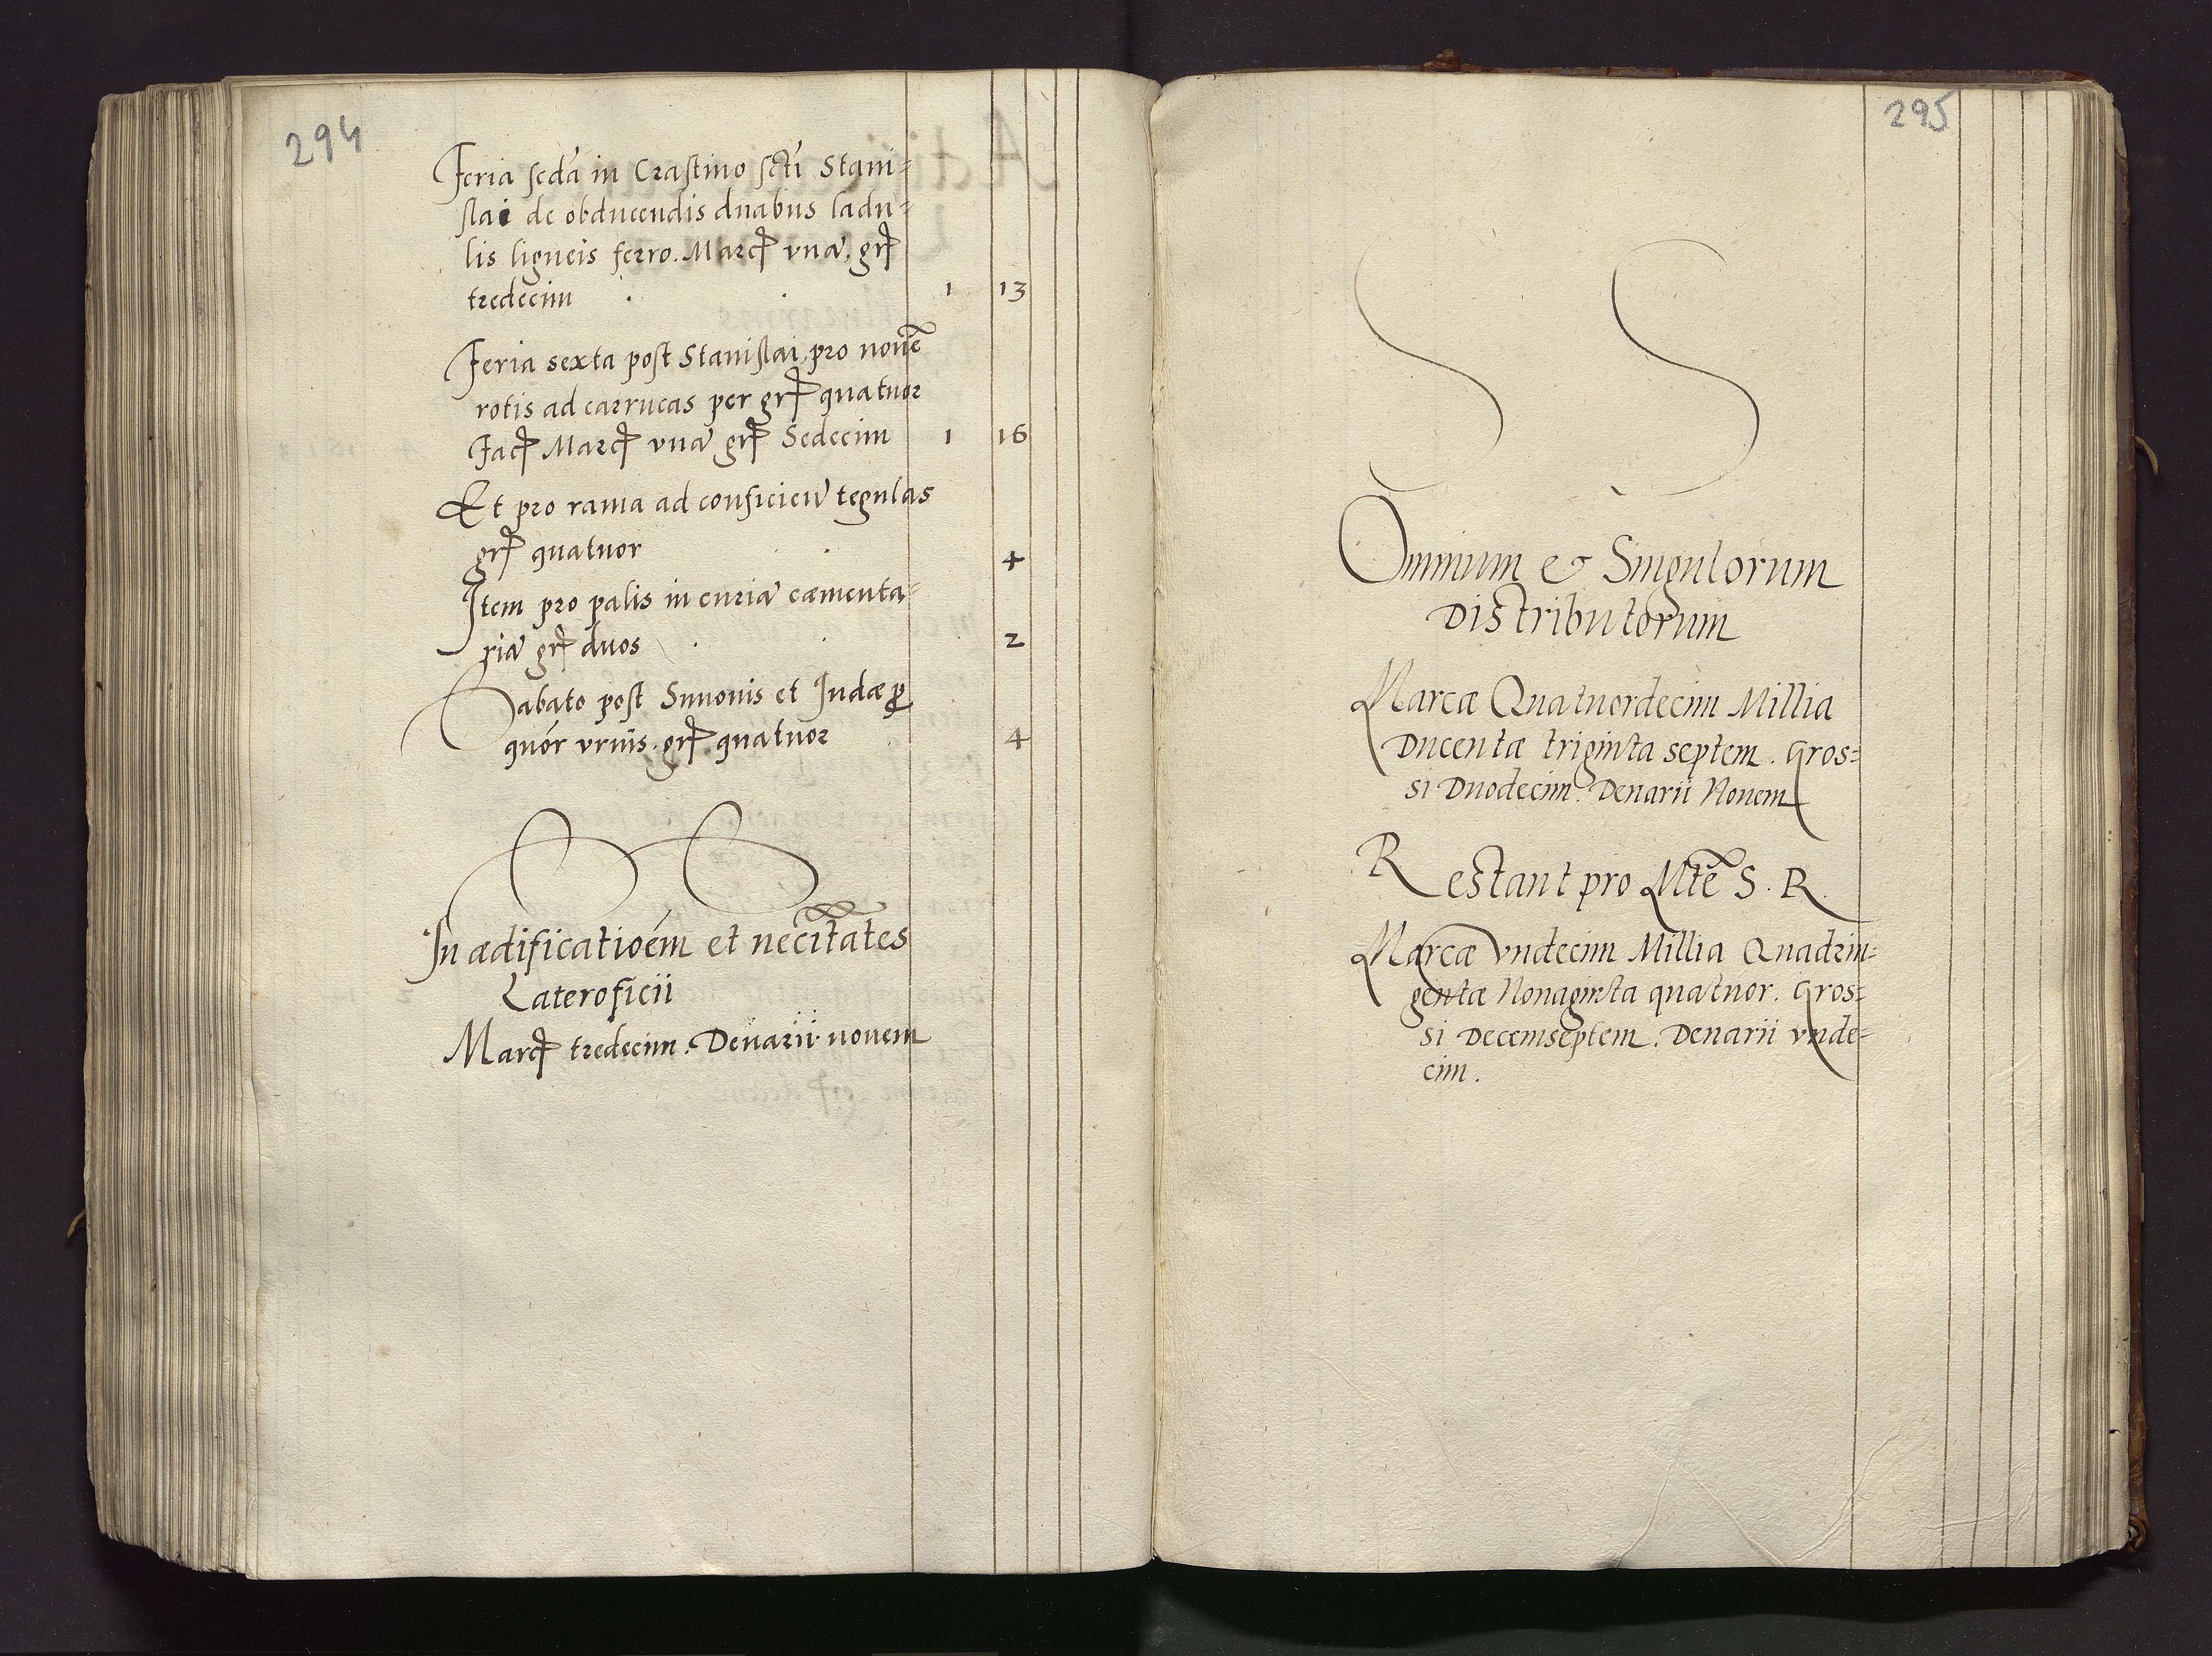 294
Feria secda in Crastino scti Stani-
slai de obducendis duabus ladu-
lis ligneis ferro. Marcȩ vna. grȩ
tredecim . . 1 13
Feria sexta post Stanislai pro novē
rotis ad carrucas per grȩ quatuor
Facȩ Marcȩ vna grȩ Sedecim 1 16
Et pro rama ad conficien tegulas
grȩ quatuor 4
Item pro palis in curia cæmenta-
ria grȩ duos . 2
Sabato post Simonis et Iudæ p
quor vrnis. grȩ quatuor 4
In ædificatioem et necitates
Lateroficii
Marcȩ tredecim. Denarii novem
295
Omnium & Singulorum
Distributorum
Marcæ Quatuordecim Millia
Ducentæ triginta septem. Gros-
si Duodecim. Denarii Novem
Restant pro Mte S. R.
Marcæ Vndecim Millia Quadrin-
gentæ Nonaginta quatuor. Gros-
si Decemseptem. Denarii vnde-
cim.